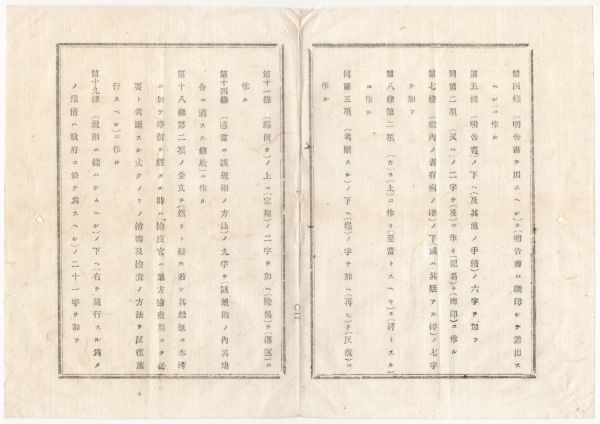 第四條(明告書ヲ出スヘシ)ヲ(明告書ニ調印シテ差出ス
ヘシ)ニ作ル
第五條(明告書)ノ下ヘ(及其他ノ手續)ノ六字ヲ加フ
同第二項(又ハ)ノ二字ヲ(及)ニ作リ(記名)ヲ(調印)ニ作ル
第七條(船內ノ者有病ノ港)ノ下(或ハ其疑アル港)ノ七字
ヲ加フ
第八條第二項(上)ニ作リ(至當トスヘキ)ヲ
ニ作ル
同第三項(考覈スル)ノ下ヘ(程)ノ字ヲ加ヘ(再ヒ)ヲ(反復)ニ
作ル
第十一條(郵便ヲ)ノ上ニ(定期)ノ二字ヲ加ヘ
作ル
第十四條(適當ニ該規則ノ方法)ノ九字ヲ該規則ノ內其場
合ニ適スル條欵)ニ作ル
第十八條第二項ノ全文ヲ(然リト雖モ若シ其船舶ニ本港
ニ於テ停留ヲ經タル時ハ檢疫官ハ地方檢疫局ニテ必
要ト考覈スル丈ケノミノ消毒及檢查ノ方法ヲ反復施
行スベル)ニ作ル
第十九條(規則ニ從ハシムヘシ)ノ下ヘ(右ヲ施行スル爲メ
ノ準備ハ政府ニ於テ爲スヘシ)ノ二十一字ヲ加フ